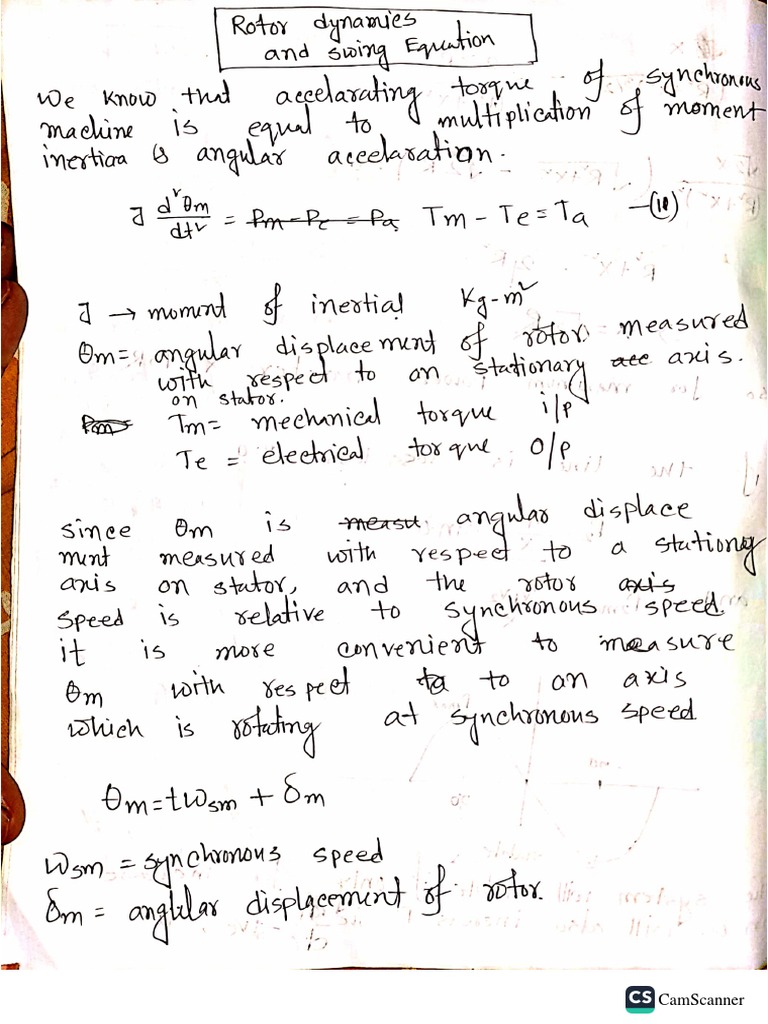 Rotor dynamics
and swing Equation
We know that accelarating torque of synchronous
machine is equal to multiplication of moment
inertiaa & angular accelaration.
J d²θm/dt² = P̶m̶ ̶-̶ ̶P̶e̶ ̶=̶ ̶P̶a̶ Tm - Te = Ta —(11)
J → moment of inertial Kg-m²
θm = angular displacement of rotor measured
with respect to an stationary a̶c̶c̶ axis.
on stator.
P̶m̶ Tm = mechanical torque i/p
Te = electrical torque O/p
since θm is m̶e̶a̶s̶u̶ angular displace
ment measured with respect to a stationay
axis on stator, and the rotor a̶x̶i̶s̶
speed is relative to synchronous speed.
it is more convenient to measure
θm with respect t̶a̶ to an axis
which is rotating at synchronous speed
θm = tωsm + δm
ωsm = synchronous speed
δm = angular displacement of rotor.
CS CamScanner